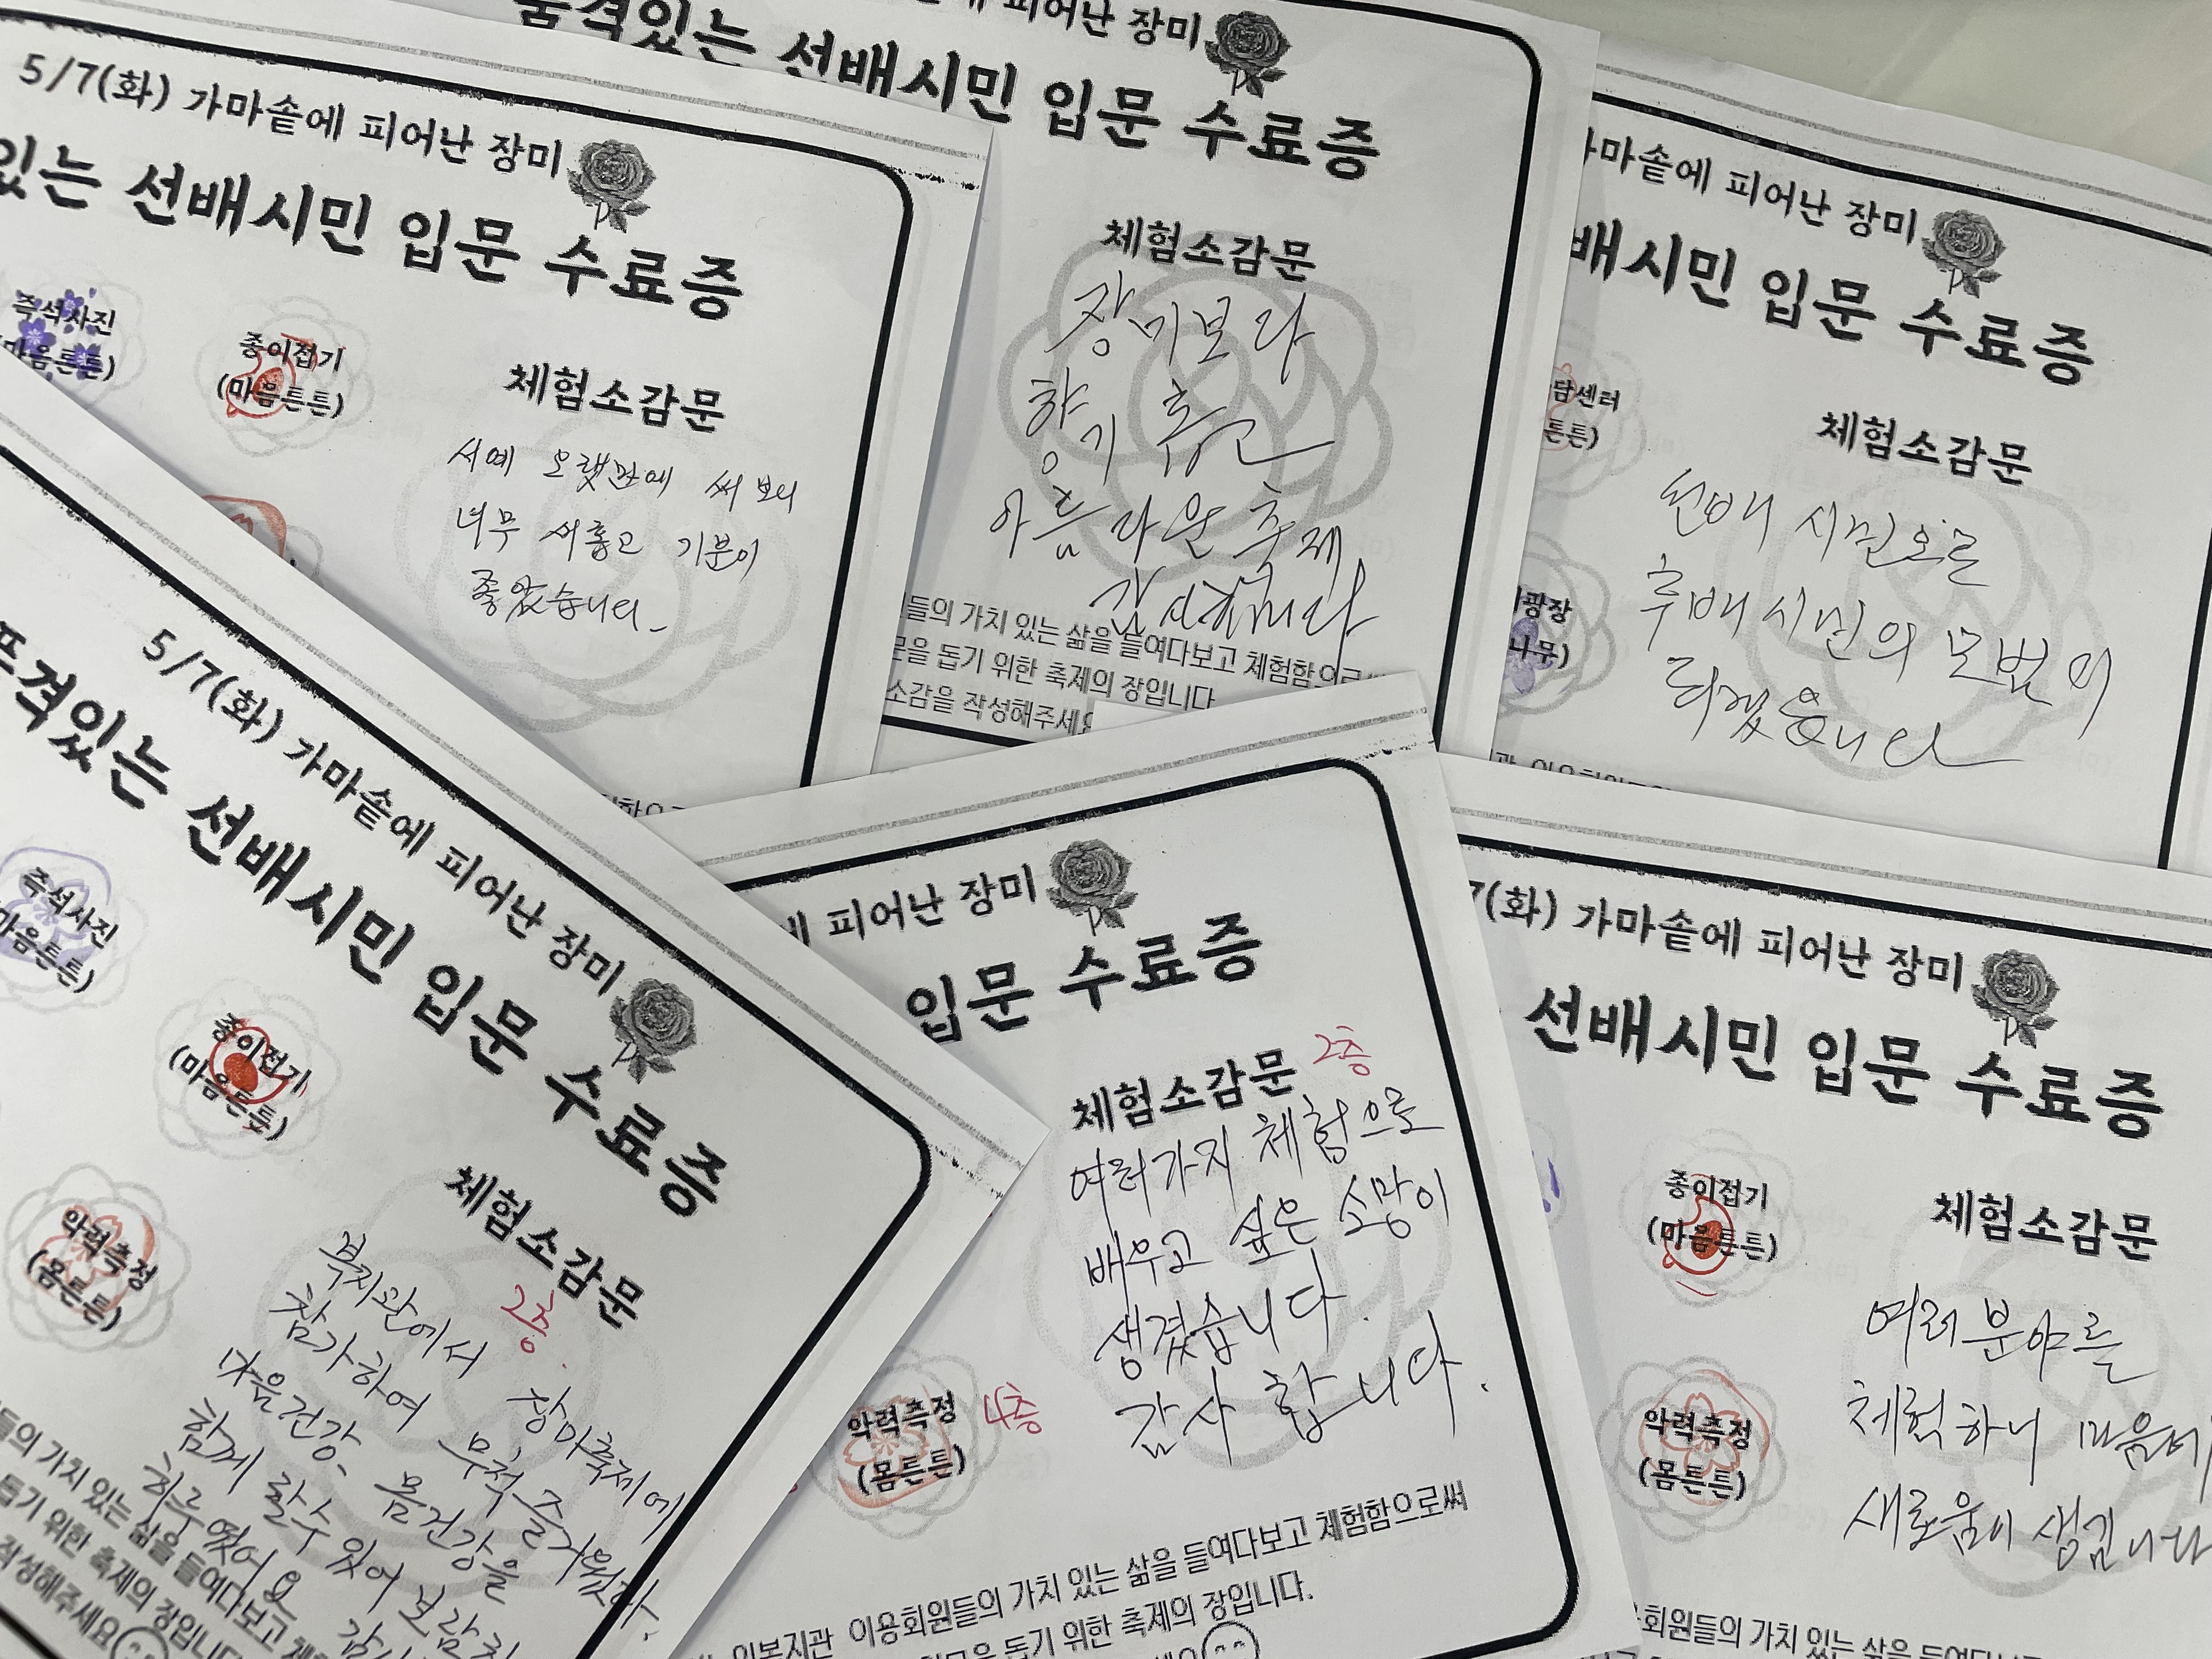 5/7(화) 가마솥에 피어난 장미
있는 선배시민 입문 수료증
즉석사진
(마음튼튼)
종이접기
(마음튼튼)
체험소감문
서예 오랫만에 써 보니
너무 새롭고 기분이
좋았습니다.
피어난 장미
품격있는 선배시민 입문 수료증
체험소감문
장미보다
향기 좋은
아름다운 축제
감사합니다
들의 가치 있는 삶을 들여다보고 체험함으로써
돕기 위한 축제의 장입니다
소감을 작성해주세요
가마솥에 피어난 장미
배시민 입문 수료증
담센터
튼튼)
체험소감문
선배 시민으로
후배 시민의 모범이
되겠습니다
광장
나무)
5/7(화) 가마솥에 피어난 장미
품격있는 선배시민 입문 수료증
즉석사진
마음튼튼)
종이접기
(마음튼튼)
악력측정
(몸튼튼)
체험소감문
2층.
복지관에서 장미축제에
참가하여 무척 즐거웠다.
마음건강, 몸건강을
함께 할수 있어 보람찬
하루였어요
들의 가치 있는 삶을 들여다보고
돕기 위한 축제의 장입니다
작성해주세요
피어난 장미
입문 수료증
체험소감문 2층
여러가지 체험으로
배우고 싶은 소망이
생겼습니다.
감사 합니다.
악력측정
(몸튼튼)
4층
이용회원들의 가치 있는 삶을 들여다보고 체험함으로써
돕기 위한 축제의 장입니다.
7(화) 가마솥에 피어난 장미
선배시민 입문 수료증
종이접기
(마음튼튼)
악력측정
(몸튼튼)
체험소감문
여러분야를
체험하니 마음에
새로움이 생깁니다
회원들의 가치 있는 삶을 들여다보